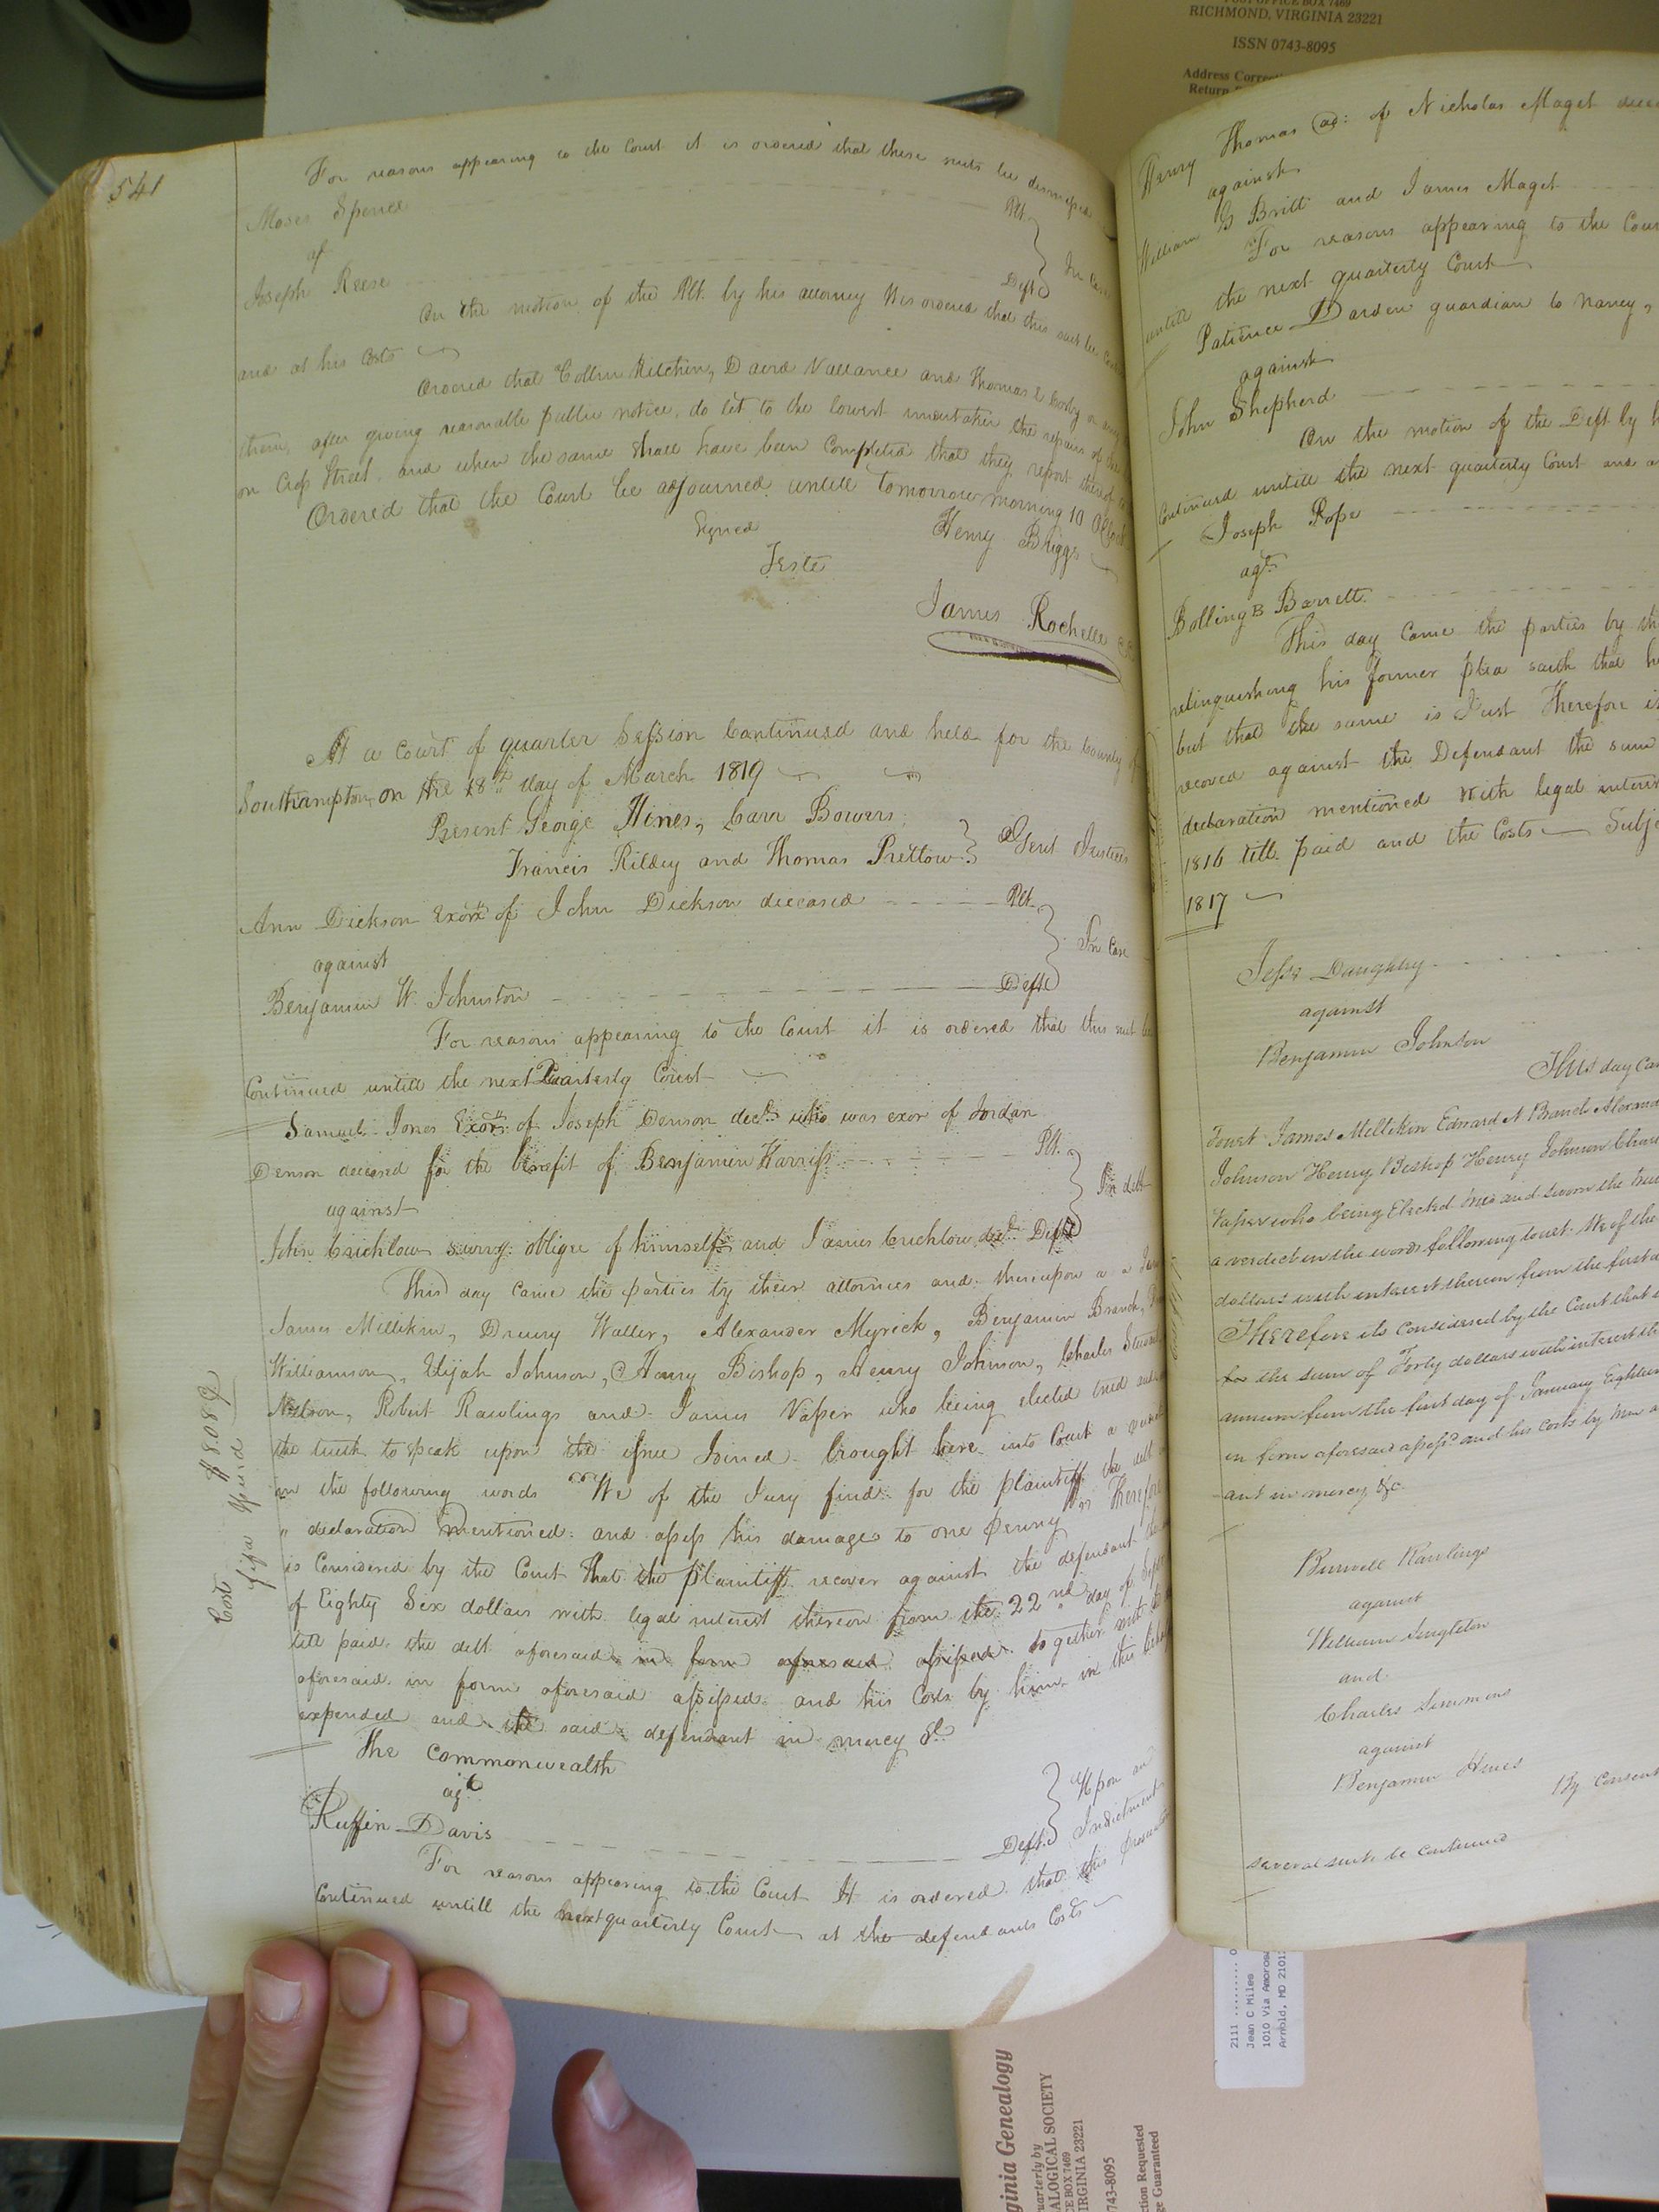 POST OFFICE BOX 7469
RICHMOND, VIRGINIA 23221
ISSN 0743-8095
Address
Return
541
For reasons appearing to the Court it is ordered that these suits be dismissed
Moses Spence Plt.
agt
Joseph Reese Deft
In Case
On the motion of the Plt. by his attorney It is ordered that this suit be
and at his Costs
Ordered that Collin Kitchen, David Vallance and Thomas
them, after giving reasonable public notice, do let to the lowest undertaker the repairs of the
on Cross Street, and when the same shall have been Completed that they report thereof
Ordered that the Court be adjourned untill tomorrow morning 10 OClock
Signed Henry Briggs
Teste
James Rochelle
At a Court of quarter Session Continued and held for the County of
Southampton on the 18th day of March 1819
Present George Hines, Carr Bowers,
Francis Ridley and Thomas Pretlow Gent Justices
Ann Dickson Exorx of John Dickson deceased Plt.
against
In Case
Benjamin W. Johnston Deft
For reasons appearing to the Court it is ordered that this suit be
Continued untill the next Quarterly Court
Samuel Jones Exor of Joseph Denson decd who was exor of Jordan
Denson deceased for the benefit of Benjamin Harriss Plt.
against
In debt
John Crichlow survg obligor of himself and James Crichlow decd Deft
This day came the parties by their attornies and thereupon a a Jury
James Millikin, Drewry Waller, Alexander Myrick, Benjamin Branch,
Williamson, Elijah Johnson, Henry Bishop, Henry Johnson, Charles
Nelson, Robert Rawlings and James Vasser who being elected tried and
the truth to speak upon the issue Joined brought here into Court a verdict
in the following words "We of the Jury find for the plaintiff the debt
" declaration mentioned and assess his damage to one penny" Therefore
is Considered by the Court that the plaintiff recover against the defendant the
of Eighty Six dollars with legal interest thereon from the 22nd day of
till paid, the debt aforesaid in form aforesaid assessed together with
aforesaid in form aforesaid assessed and his Costs by him in this behalf
expended and the said defendant in mercy &c
Costs $8.089
fifa
The Commonwealth
agt
Upon an
Indictment
Ruffin Davis Deft.
For reasons appearing to the Court It is ordered that this
Continued untill the next quarterly Court at the defendants Costs
Henry Thomas ad: of Nicholas Maget
against
William G Britt and James Maget
For reasons appearing to the Court
untill the next quarterly Court
Patience Darden guardian to Nancy,
against
John Shepherd
On the motion of the Deft. by
Continued untill the next quarterly Court and
Joseph Pope
agt
Bolling B Barrett
This day Came the parties by
relinquishing his former plea saith that
but that the same is Just Therefore
recover against the Defendant the sum
declaration mentioned With legal interest
1816 till paid and the Costs
1817
Jesse Daughtry
against
Benjamin Johnson
This day
towit James Millikin Edward A Branch
Johnson Henry Bishop Henry Johnson
Vasser who being Elected tried and sworn the
a verdict in the words following towit We of the
dollars with interest thereon from the first
Therefore its Considered by the Court that
the sum of Forty dollars with interest
annum from the first day of January
in form aforesaid assessd and his costs by him
ant in mercy &c
Burwell Rawlings
against
William Singleton
and
Charles Simmons
against
Benjamin Hines
By Consent
several suits be Continued
2111
Jean C Miles
1010 Via Amorosa
Arnold, MD
Genealogy
SOCIETY
BOX 7469
VIRGINIA 23221
743-8095
Requested
Guaranteed